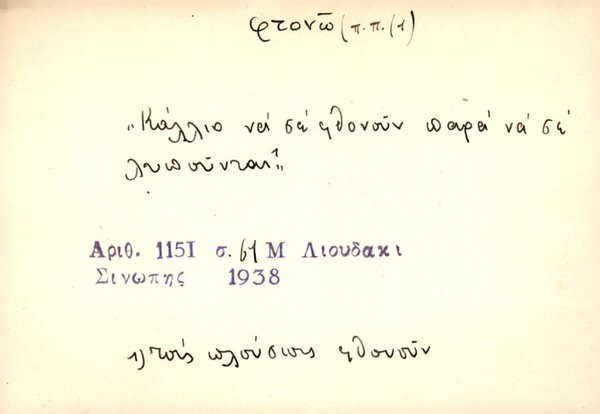 φτονῶ (π.π.(1)
„Κάλλιο νά σέ φθονοῦν παρά νά σέ
λυποῦνται"
Αριθ. 1151 σ. 61 Μ Λιουδακι
Σινωπης 1938
1) τούς πλούσιους φθονοῦν